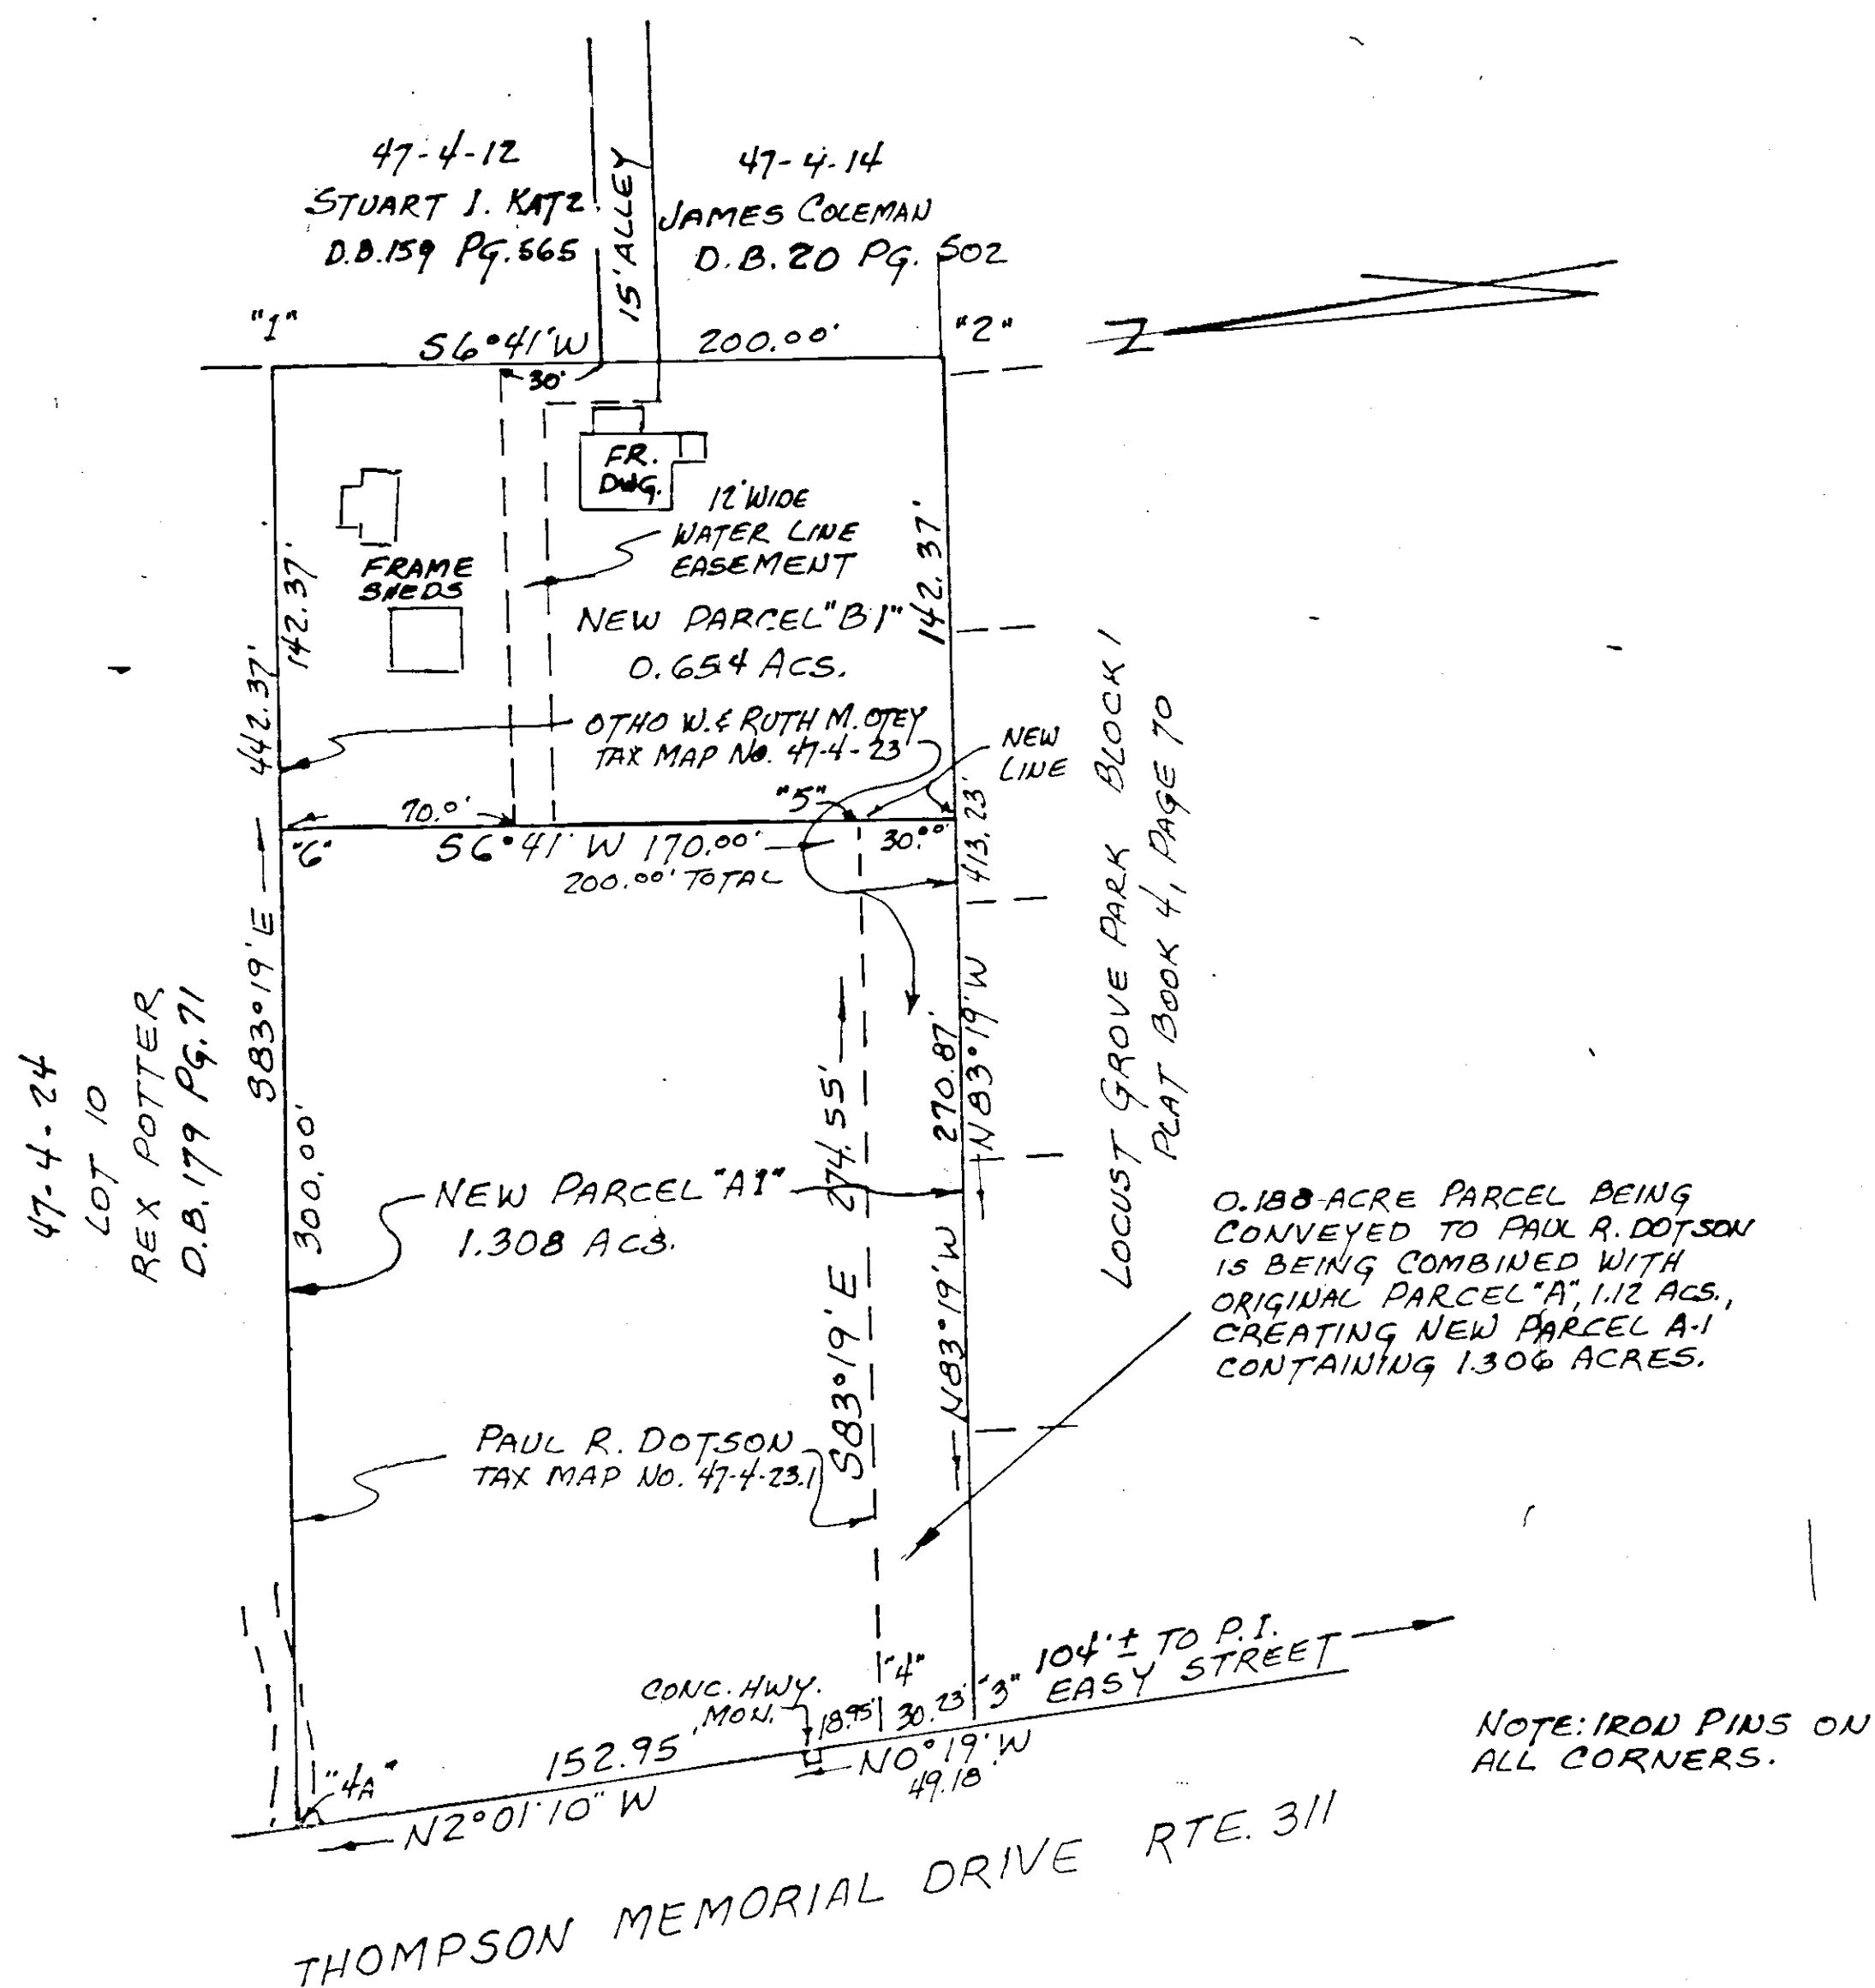 47-4-12
STUART I. KATZ
D.B.159 PG.565
15' ALLEY
47-4-14
JAMES COLEMAN
D.B. 20 PG. 502
"1"
S6°41'W
200.00'
"2"
N
30'
FR.
DWG.
12' WIDE
WATER LINE
EASEMENT
FRAME
SHEDS
142.37'
142.37'
NEW PARCEL "B1"
0.654 ACS.
442.37'
OTHO W. & RUTH M. OTEY
TAX MAP NO. 47-4-23
NEW
LINE
70.0'
"5"
"6"
S6°41' W 170.00'
200.00' TOTAL
30.00'
413.23'
N83°19'W
LOCUST GROVE PARK BLOCK 1
PLAT BOOK 4, PAGE 70
S83°19'E
47-4-24
LOT 10
REX POTTER
D.B. 179 PG. 71
300.00'
NEW PARCEL "A1"
1.308 ACS.
S83°19'E 274.55'
N83°19'W 270.87'
0.188-ACRE PARCEL BEING
CONVEYED TO PAUL R. DOTSON
IS BEING COMBINED WITH
ORIGINAL PARCEL "A", 1.12 ACS.,
CREATING NEW PARCEL A-1
CONTAINING 1.306 ACRES.
PAUL R. DOTSON
TAX MAP NO. 47-4-23.1
CONC. HWY.
MON.
18.95'
"4"
30.23'
"3"
104'± TO P.I.
EASY STREET
152.95'
"4A"
N2°01'10" W
N0°19'W
49.18'
NOTE: IRON PINS ON
ALL CORNERS.
THOMPSON MEMORIAL DRIVE RTE. 311